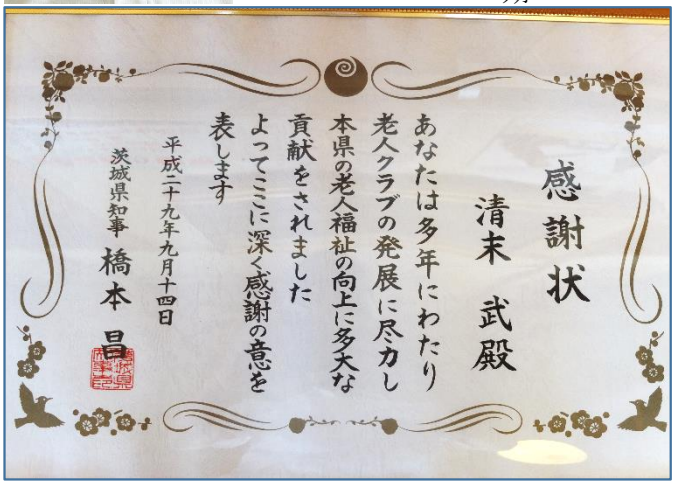 感謝状
清末 武殿
あなたは多年にわたり
老人クラブの発展に尽力し
本県の老人福祉の向上に多大な
貢献をされました
よってここに深く感謝の意を
表します
平成二十九年九月十四日
茨城県知事 橋本 昌